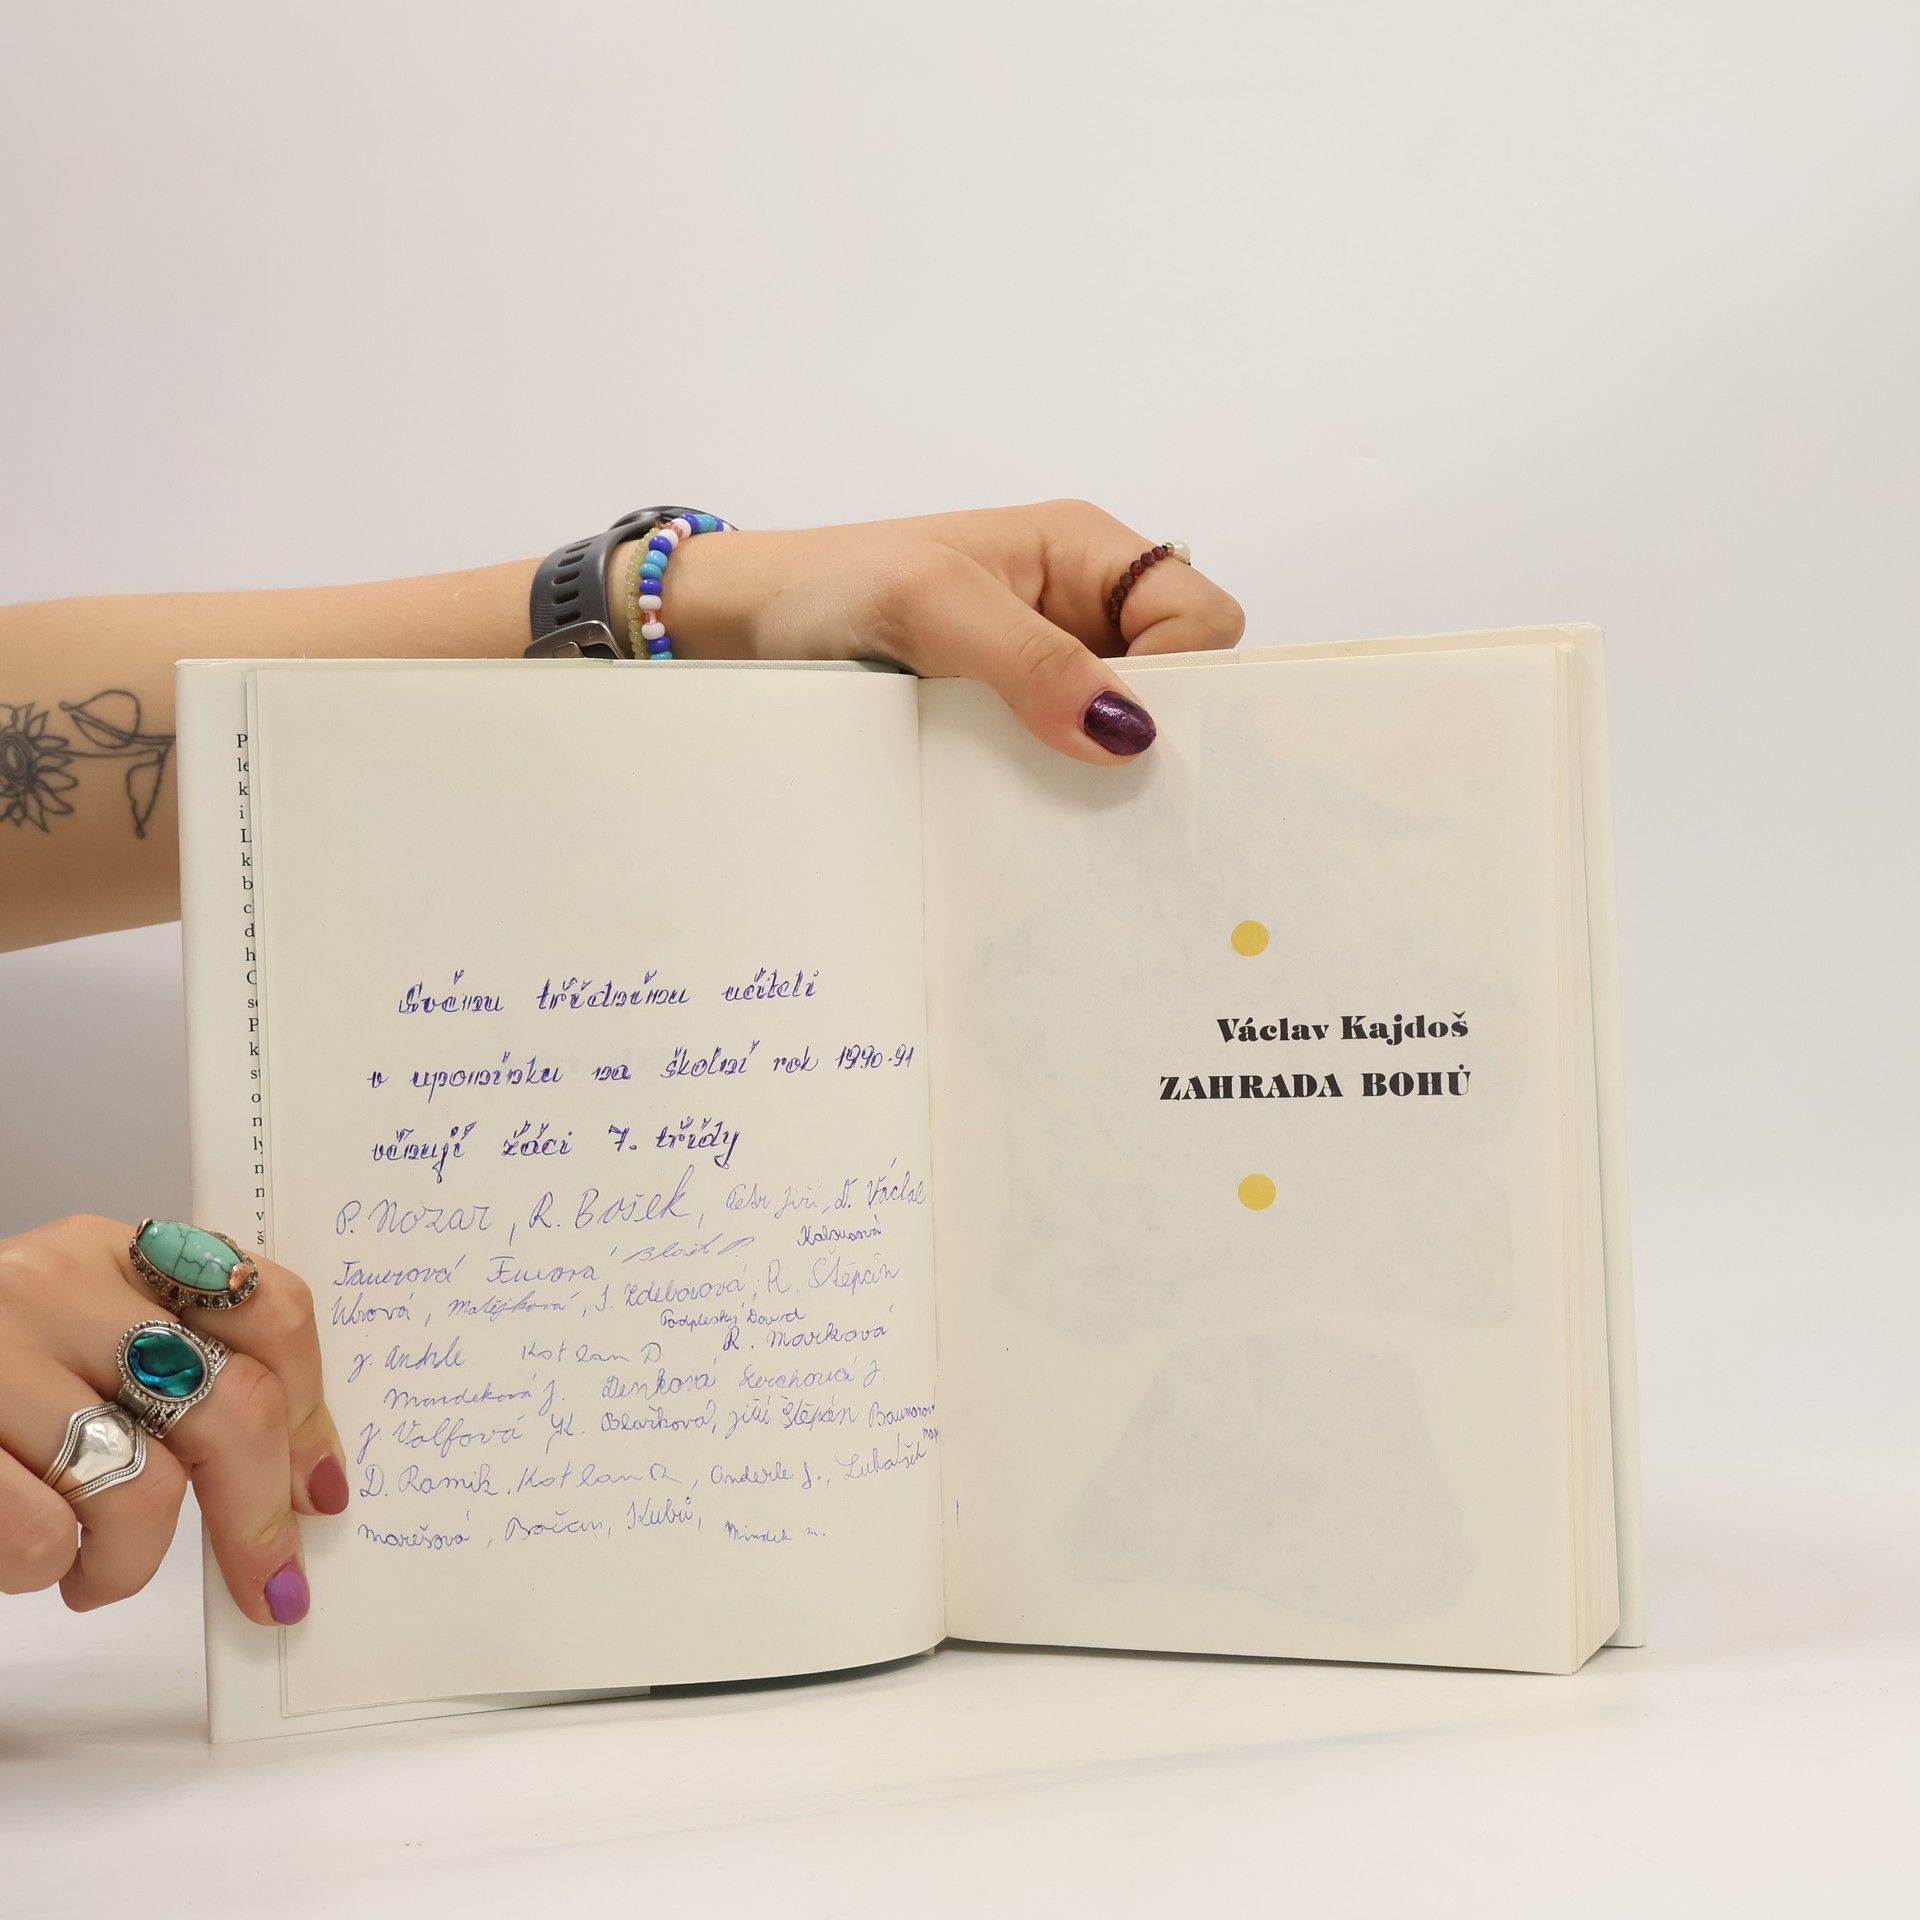 P
le
k
i
L
k
b
d
h
P
k
o
n
n
n
v
š
Svému třídnímu učiteli
v upomínku na školní rok 1990-91
věnují žáci 7. třídy
P. Nozar, R. Bošek, Petr Jiří, D. Václav
Kalousová
Urová, Matějková, J. Zdeborová, R. Štěpán
Podpleský David
J. Anděle Kotlan D R. Marková
Mandeková J. Denková Lerchová J.
J. Volfová K. Blažková, Jiří Štěpán
D. Ramik, Kotlan, Anderle J., Lukášek
Marešová, Bočan, Kubů, Mindek M.
Václav Kajdoš
ZAHRADA BOHŮ